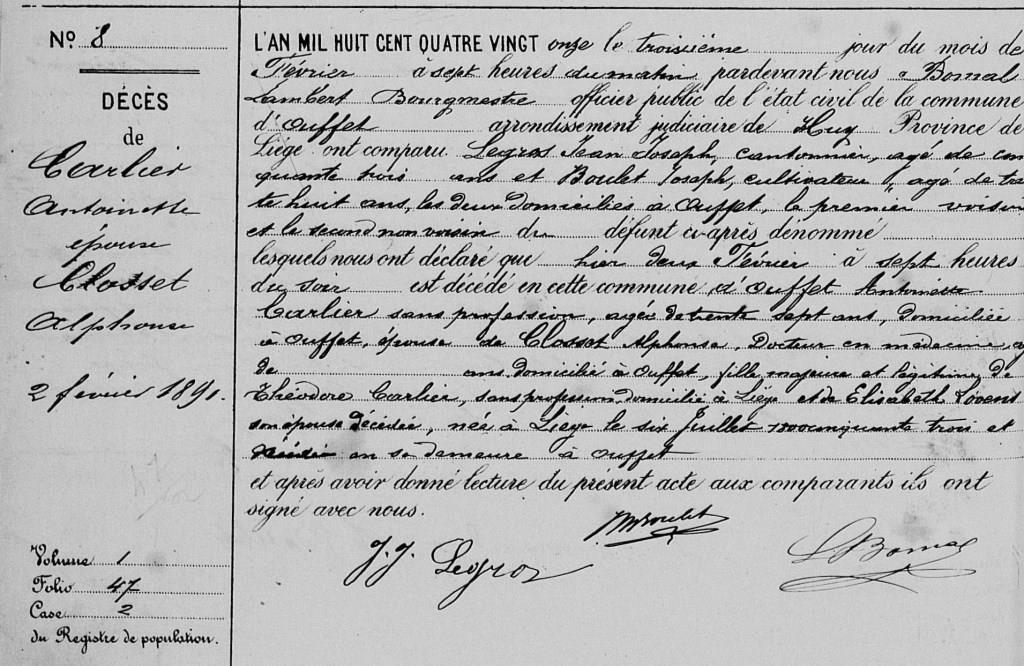 Nº 8
DÉCÈS
de
Carlier
Antoinette
épouse
Closset
Alphonse
2 février 1891.
Volume 1
Folio 47
Case 2
du Registre de population.
L'AN MIL HUIT CENT QUATRE VINGT onze le troisième jour du mois de
Février à sept heures du matin pardevant nous Bomal
Lambert Bourgmestre officier public de l'état civil de la commune
d'Ouffet arrondissement judiciaire de Huy Province de
Liége ont comparu Legros Jean Joseph, cantonnier, agé de cin
quante trois ans et Boulet Joseph, cultivateur, agé de tren
te huit ans, les deux domiciliés à Ouffet, le premier voisin
et le second non voisin du défunt ci-après dénommé
lesquels nous ont déclaré que hier deux Février à sept heures
du soir est décédé en cette commune d'Ouffet Antoinette
Carlier sans profession, agée de trente sept ans, domiciliée
à Ouffet, épouse de Closset Alphonse, Docteur en médecine,
de ans domicilié à Ouffet, fille majeure et légitime de
Théodore Carlier, sans profession domicilié à Liége et de Elisabeth
son épouse décédée, née à Liége le six Juillet 1800 cinquante trois et
décédée en sa demeure à Ouffet
et après avoir donné lecture du présent acte aux comparants ils ont
signé avec nous.
J Boulet
J. J. Legros
L Bomal